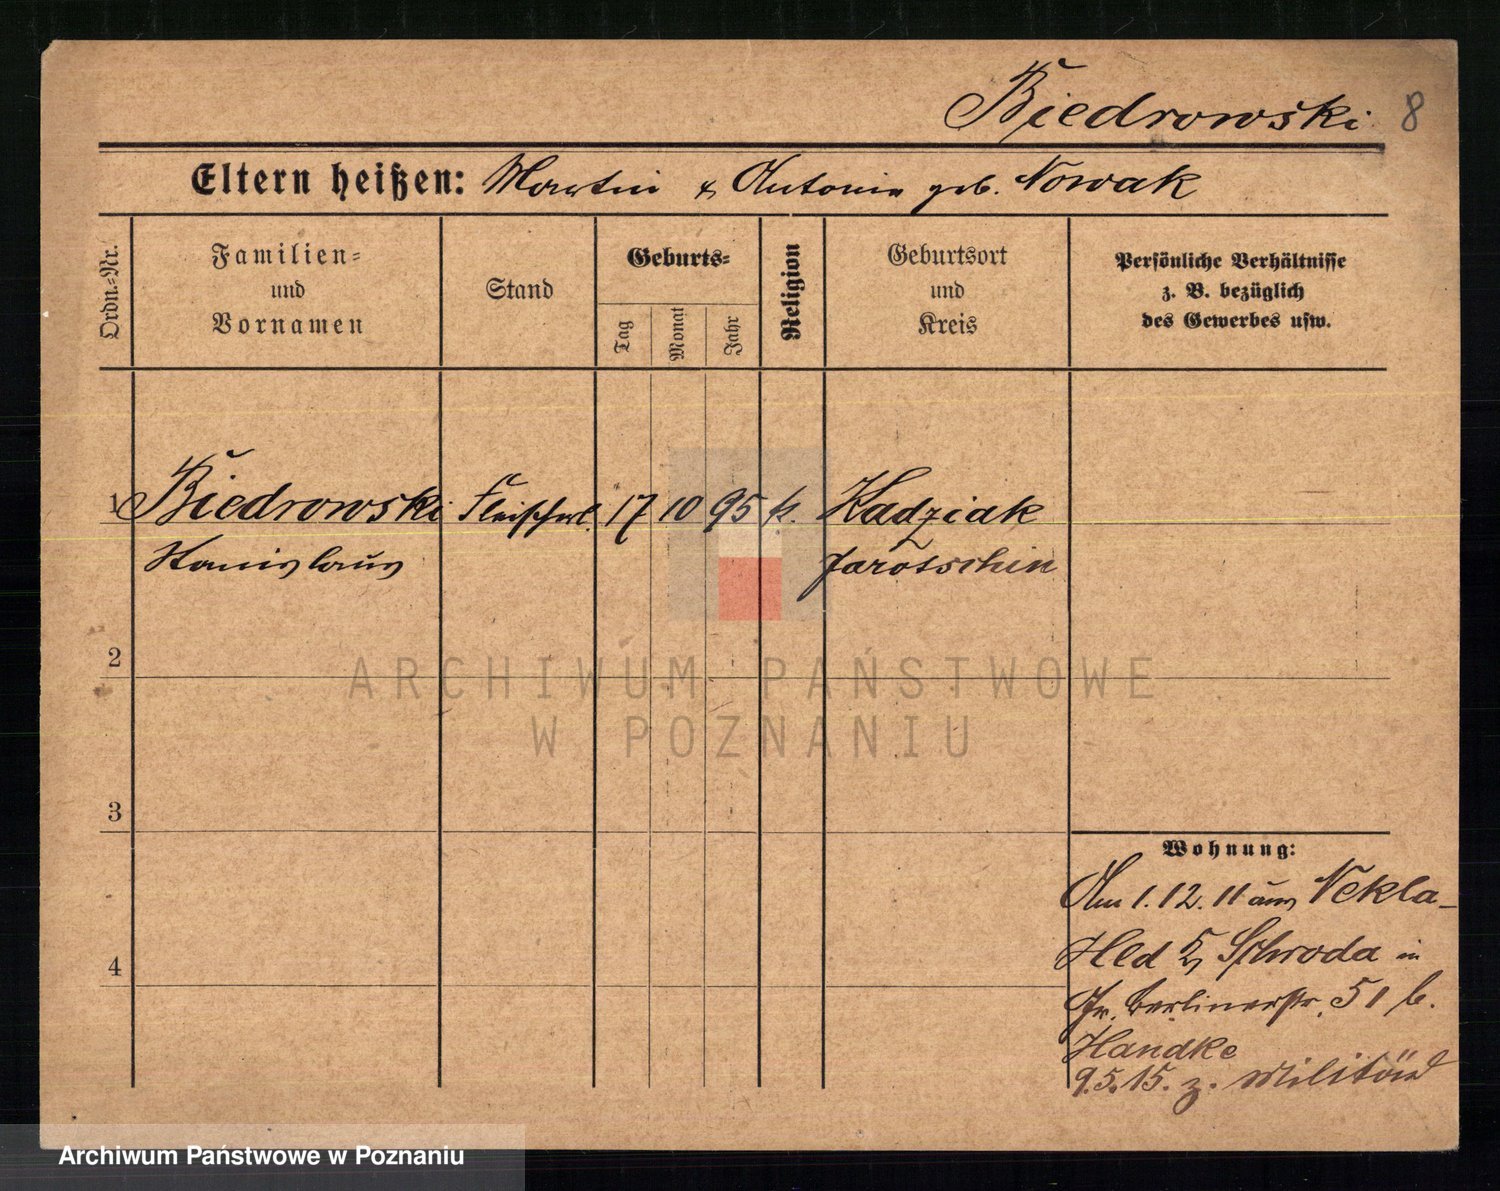 Biedrowski 8
Eltern heißen: Martin & Antonie geb. Nowak
Ordn.-Nr.
Familien-
und
Vornamen
Stand
Geburts-
Tag
Monat
Jahr
Religion
Geburtsort
und
Kreis
Persönliche Verhältnisse
z. B. bezüglich
des Gewerbes usw.
1 Biedrowski Fleischerl. 17 10 95 k. Kadziak
Stanislaus Jarotschin
2
ARCHIWUM PAŃSTWOWE
W POZNANIU
3
Wohnung:
Am 1.12.11 aus Nekla-
Hld Schroda in
4
Gr. Berlinerstr. 51 b.
Handke
9.5.15. z. Militär
Archiwum Państwowe w Poznaniu